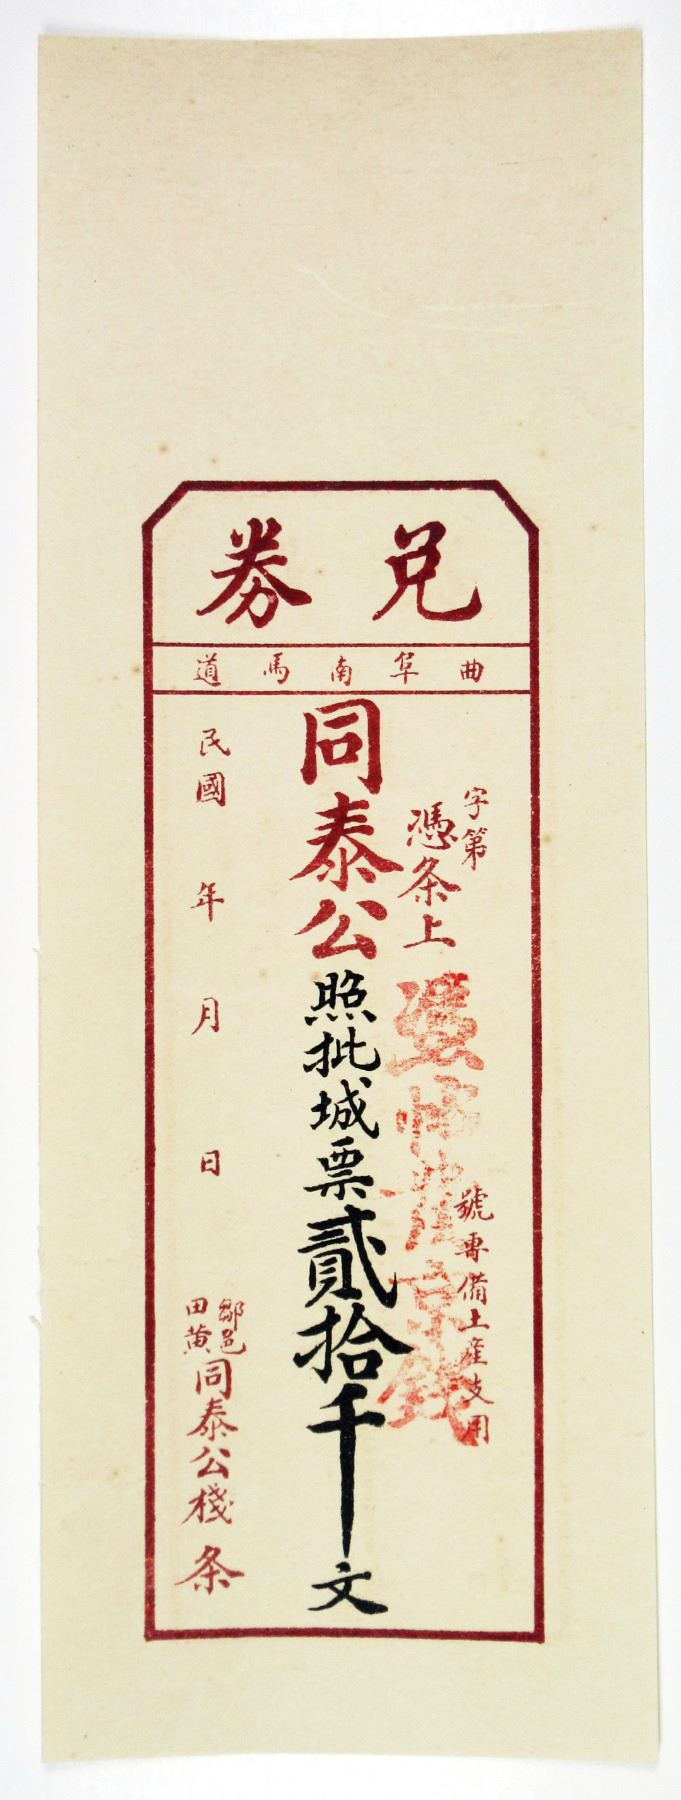 兑券
曲阜南馬道
字第
號專備土產支用
憑条上
憑帖發京錢
同泰公照批城票貳拾千文
民國年月日
鄒邑
田黄
同泰公棧条